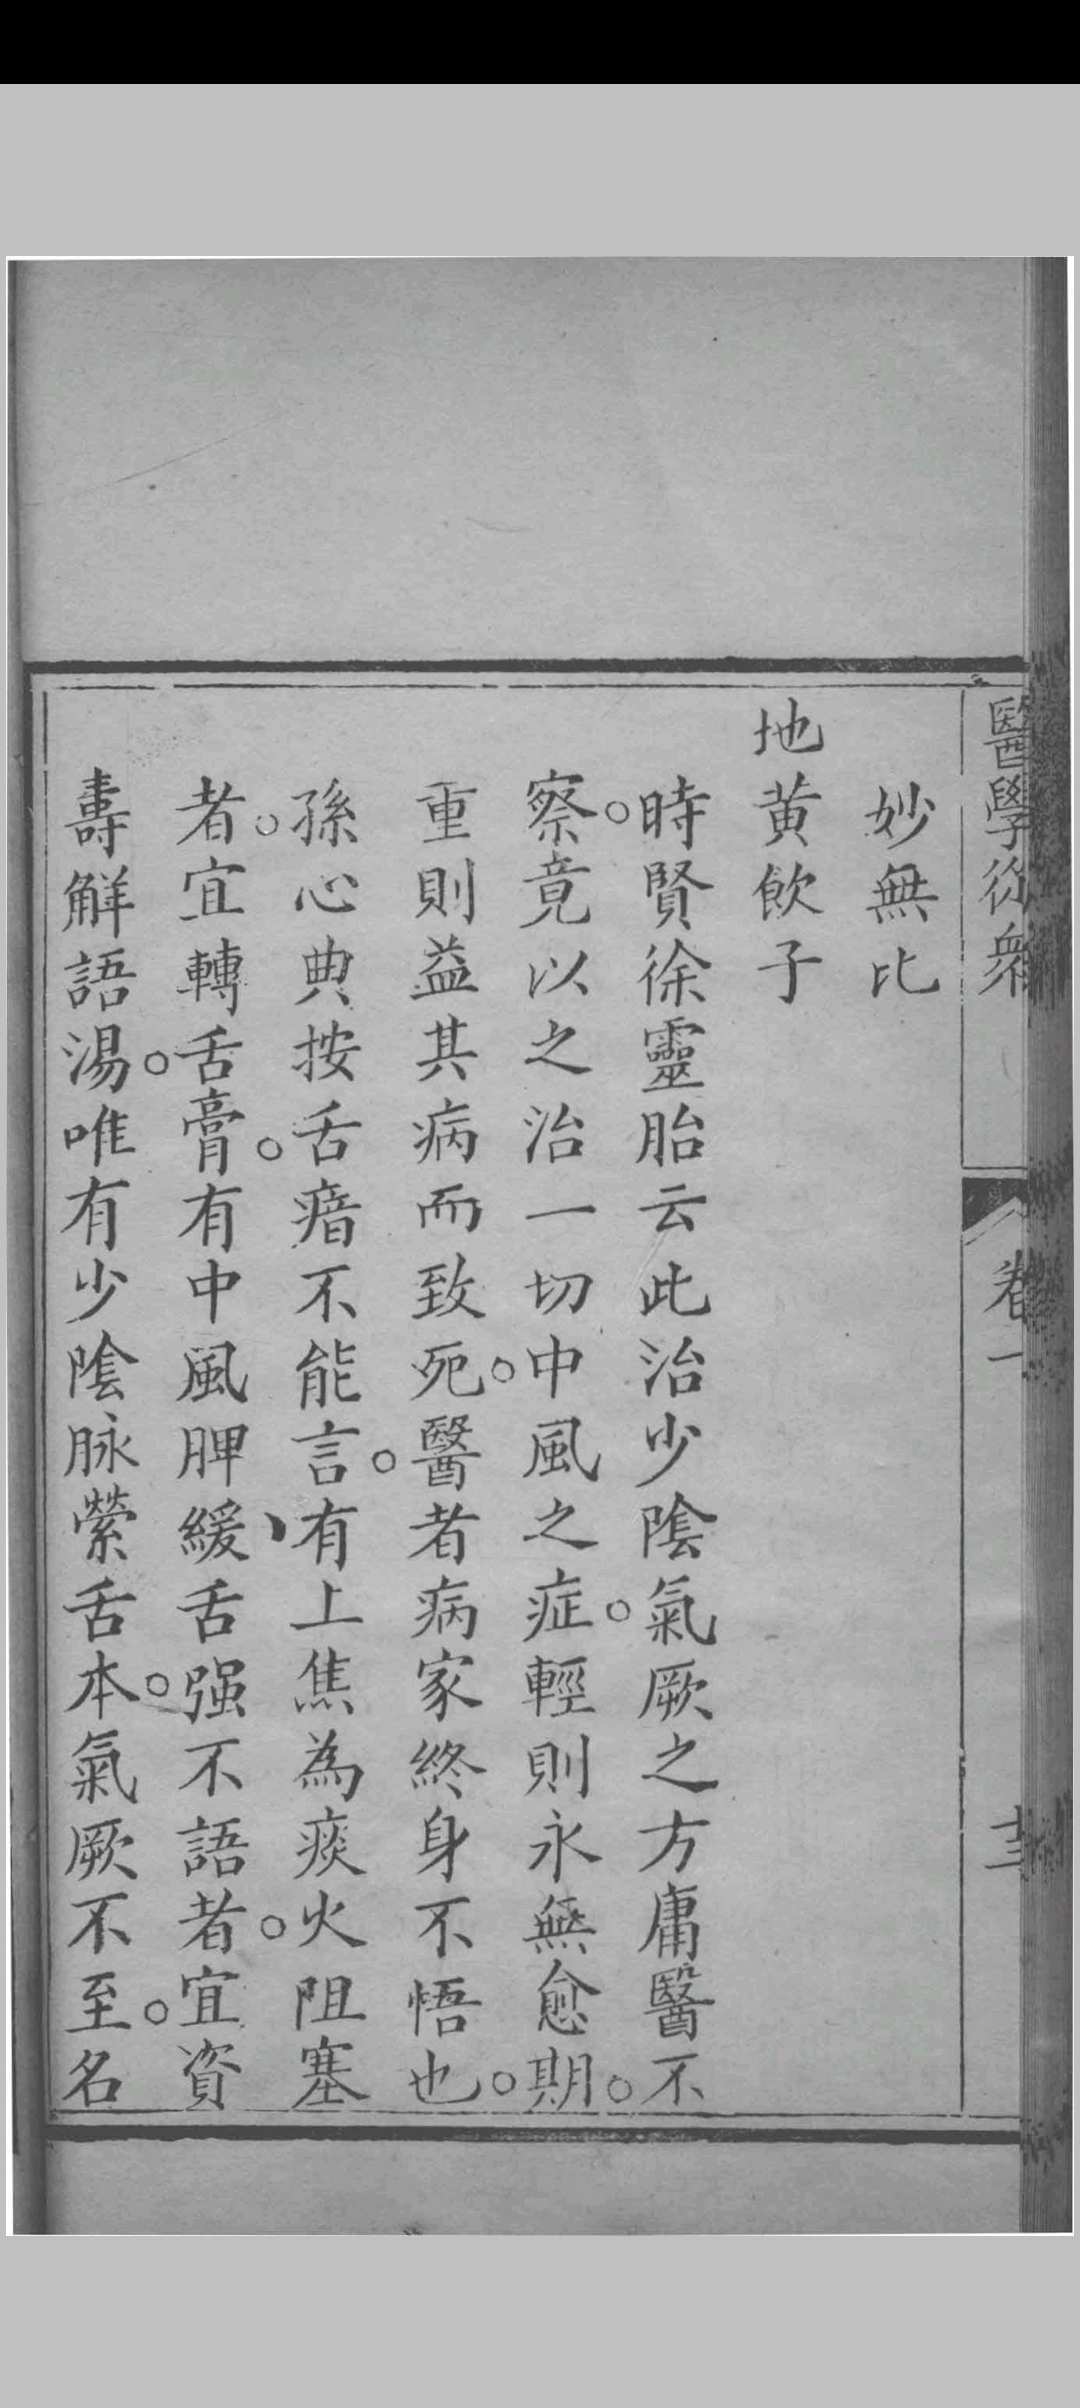 醫學從衆
卷一
妙無比
地黄飲子
時賢徐靈胎云此治少陰氣厥之方庸醫不
察。竟以之治一切中風之症。輕則永無愈期。
重則益其病而致死。醫者病家終身不悟也。
孫心典按舌瘖不能言。有上焦為痰火阻塞
者。宜轉舌膏。有中風脾緩、舌强不語者。宜資
壽解語湯。唯有少陰脉縈舌本。氣厥不至。名